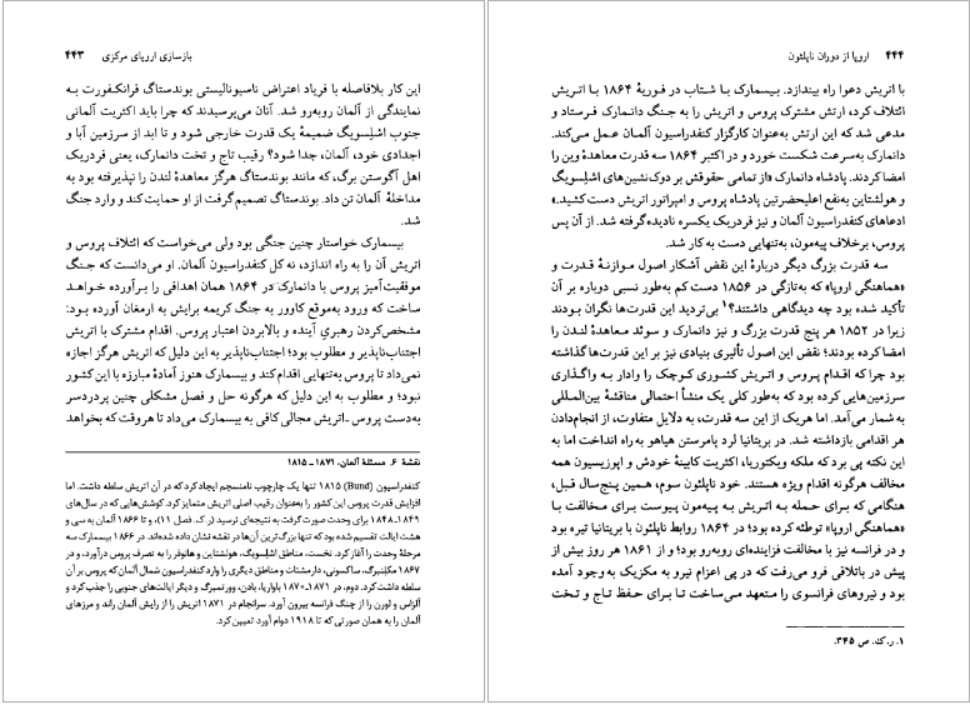 بازسازی اروپای مرکزی ۴۴۳
این کار بلافاصله با فریاد اعتراض ناسیونالیستی بوندستاگ فرانکفورت به
نمایندگی از آلمان روبه‌رو شد. آنان می‌پرسیدند که چرا باید اکثریت آلمانی
جنوب اشلسویگ ضمیمهٔ یک قدرت خارجی شود و تا ابد از سرزمین آبا و
اجدادی خود، آلمان، جدا شود؟ رقیب تاج و تخت دانمارک، یعنی فردریک
اهل آگوستن برگ، که مانند بوندستاگ هرگز معاهدهٔ لندن را نپذیرفته بود به
مداخلهٔ آلمان تن داد. بوندستاگ تصمیم گرفت از او حمایت کند و وارد جنگ
شد.
بیسمارک خواستار چنین جنگی بود ولی می‌خواست که ائتلاف پروس و
اتریش آن را به راه اندازد، نه کل کنفدراسیون آلمان. او می‌دانست که جنگ
موفقیت‌آمیز پروس با دانمارک در ۱۸۶۴ همان اهدافی را برآورده خواهد
ساخت که ورود به‌موقع کاوور به جنگ کریمه برایش به ارمغان آورده بود:
مشخص‌کردن رهبریِ آینده و بالابردن اعتبار پروس. اقدام مشترک با اتریش
اجتناب‌ناپذیر و مطلوب بود؛ اجتناب‌ناپذیر به این دلیل که اتریش هرگز اجازه
نمی‌داد تا پروس به‌تنهایی اقدام کند و بیسمارک هنوز آمادهٔ مبارزه با این کشور
نبود؛ و مطلوب به این دلیل که هرگونه حل و فصل مشکلی چنین پردردسر
به‌دست پروس ـ اتریش مجالی کافی به بیسمارک می‌داد تا هر وقت که بخواهد
نقشهٔ ۶. مسئلهٔ آلمان، ۱۸۷۱ ـ ۱۸۱۵
کنفدراسیون (Bund) ۱۸۱۵ تنها یک چارچوب نامنسجم ایجاد کرد که در آن اتریش سلطه داشت. اما
افزایش قدرت پروس این کشور را به‌عنوان رقیب اصلی اتریش متمایز کرد. کوشش‌هایی که در سال‌های
۱۸۴۹ـ۱۸۴۸ برای وحدت صورت گرفت به نتیجه‌ای نرسید (ر.ک. فصل ۱۱)، و تا ۱۸۶۶ آلمان به سی و
هشت ایالت تقسیم شده بود که تنها بزرگ‌ترین آن‌ها در نقشه نشان داده شده‌اند. در ۱۸۶۶ بیسمارک سه
مرحلهٔ وحدت را آغاز کرد. نخست، مناطق اشلسویگ، هولشتاین و هانوفر را به تصرف پروس درآورد، و در
۱۸۶۷ مکلنبرگ، ساکسونی، دارمشتات و مناطق دیگری را وارد کنفدراسیون شمال آلمان که پروس بر آن
سلطه داشت کرد. دوم، در ۱۸۷۱ـ۱۸۷۰ باواریا، بادن، وورتمبرگ و دیگر ایالت‌های جنوبی را جذب کرد و
آلزاس و لورن را از چنگ فرانسه بیرون آورد. سرانجام در ۱۸۷۱ اتریش را از رایش آلمان راند و مرزهای
آلمان را به همان صورتی که تا ۱۹۱۸ دوام آورد تعیین کرد.
۴۴۴ اروپا از دوران ناپلئون
با اتریش دعوا راه بیندازد. بیسمارک با شتاب در فوریهٔ ۱۸۶۴ با اتریش
ائتلاف کرد، ارتش مشترک پروس و اتریش را به جنگ دانمارک فرستاد و
مدعی شد که این ارتش به‌عنوان کارگزار کنفدراسیون آلمان عمل می‌کند.
دانمارک به‌سرعت شکست خورد و در اکتبر ۱۸۶۴ سه قدرت معاهدهٔ وین را
امضا کردند. پادشاه دانمارک «از تمامی حقوقش بر دوک‌نشین‌های اشلسویگ
و هولشتاین به‌نفع اعلیحضرتین پادشاه پروس و امپراتور اتریش دست کشید.»
ادعاهای کنفدراسیون آلمان و نیز فردریک یکسره نادیده گرفته شد. از آن پس
پروس، برخلاف پیه‌مون، به‌تنهایی دست به کار شد.
سه قدرت بزرگ دیگر دربارهٔ این نقض آشکار اصول موازنهٔ قدرت و
«هماهنگی اروپا» که به‌تازگی در ۱۸۵۶ دست کم به‌طور نسبی دوباره بر آن
تأکید شده بود چه دیدگاهی داشتند؟۱ بی‌تردید این قدرت‌ها نگران بودند
زیرا در ۱۸۵۲ هر پنج قدرت بزرگ و نیز دانمارک و سوئد معاهدهٔ لندن را
امضا کرده بودند؛ نقض این اصول تأثیری بنیادی نیز بر این قدرت‌ها گذاشته
بود چرا که اقدام پروس و اتریش کشوری کوچک را وادار به واگذاری
سرزمین‌هایی کرده بود که به‌طور کلی یک منشأ احتمالی مناقشهٔ بین‌المللی
به شمار می‌آمد. اما هریک از این سه قدرت، به دلایل متفاوت، از انجام‌دادن
هر اقدامی بازداشته شد. در بریتانیا لرد پامرستن هیاهو به‌راه انداخت اما به
این نکته پی برد که ملکه ویکتوریا، اکثریت کابینهٔ خودش و اپوزیسیون همه
مخالف هرگونه اقدام ویژه هستند. خود ناپلئون سوم، همین پنج‌سال قبل،
هنگامی که برای حمله به اتریش به پیه‌مون پیوست برای مخالفت با
«هماهنگی اروپا» توطئه کرده بود؛ در ۱۸۶۴ روابط ناپلئون با بریتانیا تیره بود
و در فرانسه نیز با مخالفت فزاینده‌ای روبه‌رو بود؛ و از ۱۸۶۱ هر روز بیش از
پیش در باتلاقی فرو می‌رفت که در پی اعزام نیرو به مکزیک به وجود آمده
بود و نیروهای فرانسوی را متعهد می‌ساخت تا برای حفظ تاج و تخت
۱. ر.ک. ص ۳۴۵.